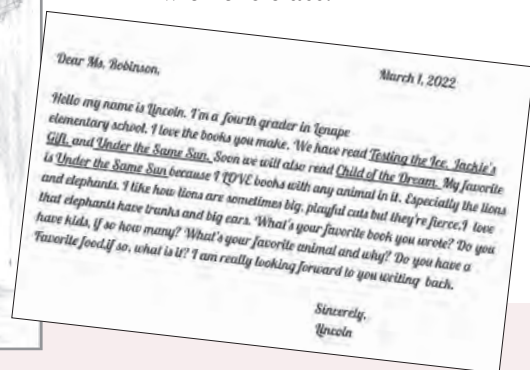 Dear Ms. Robinson,
March 1, 2022
Hello my name is Lincoln. I'm a fourth grader in Lenape
elementary school. I love the books you make. We have read Testing the Ice, Jackie's
Gift, and Under the Same Sun. Soon we will also read Child of the Dream. My favorite
is Under the Same Sun because I LOVE books with any animal in it. Especially the lions
and elephants. I like how lions are sometimes big, playful cats but they're fierce.I love
that elephants have trunks and big ears. What's your favorite book you wrote? Do you
have kids, if so how many? What's your favorite animal and why? Do you have a
Favorite food.if so, what is it? I am really looking forward to you writing back.
Sincerely,
Lincoln